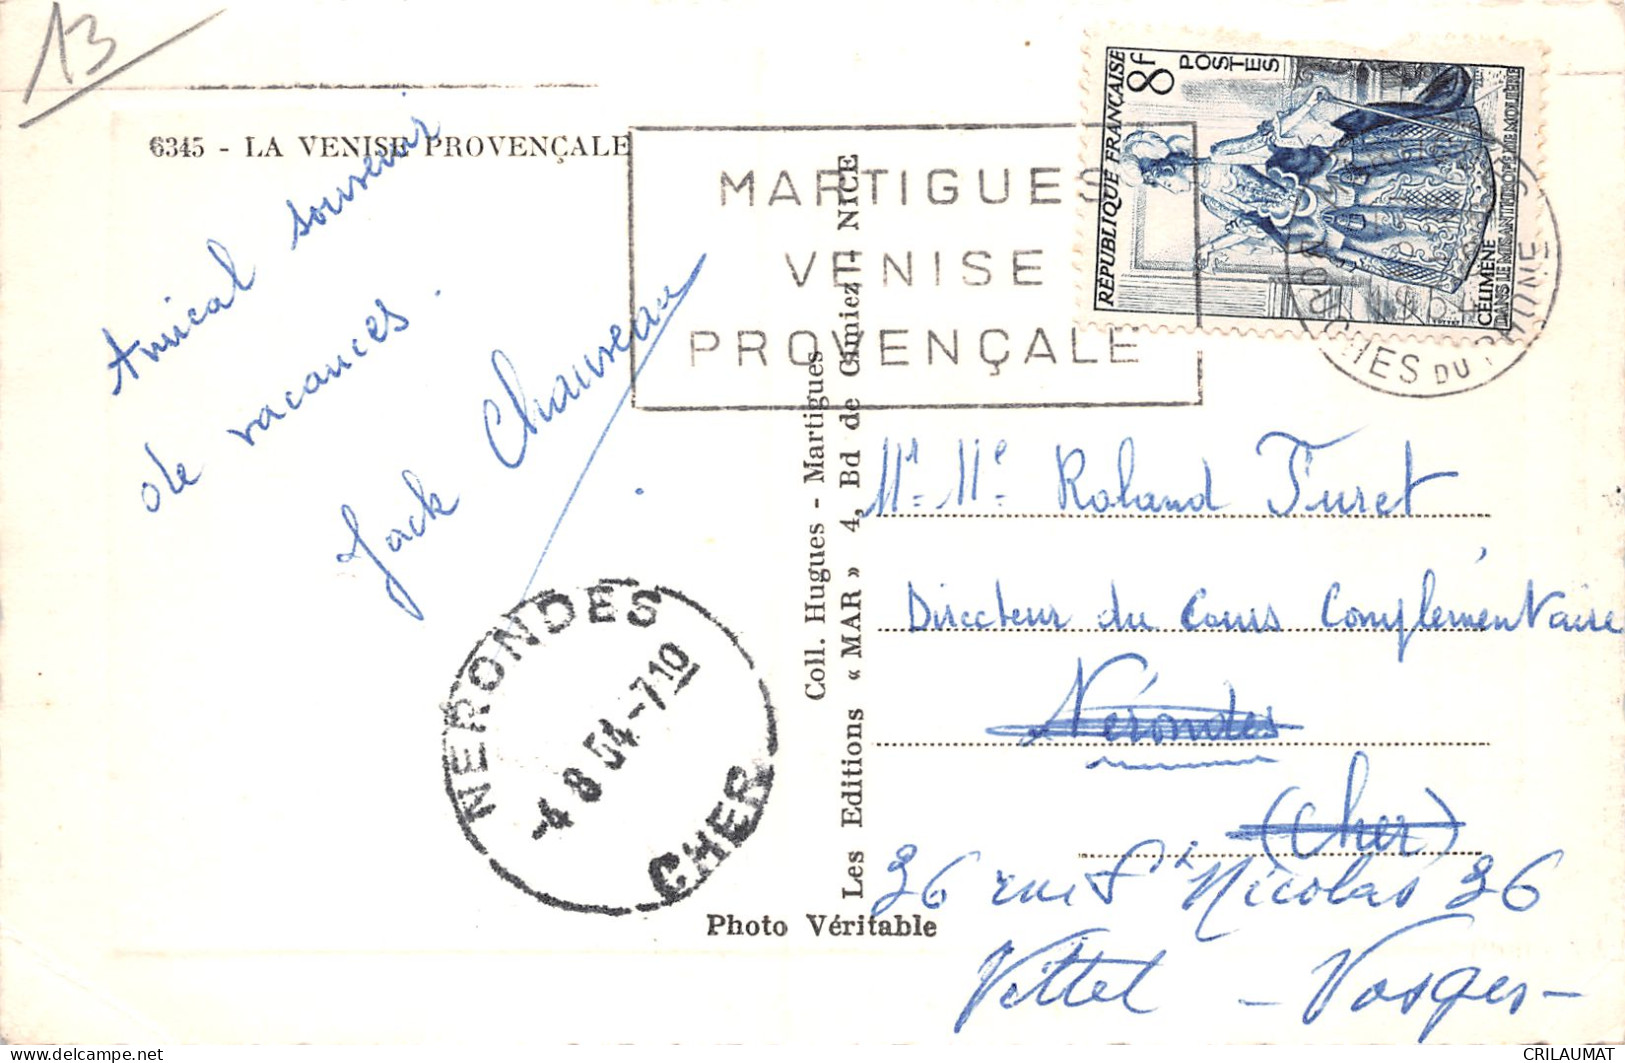 13
6345 - LA VENISE PROVENÇALE
Amical souvenir
de vacances.
Jack Chauveau
MARTIGUES
VENISE
PROVENÇALE
RÉPUBLIQUE FRANÇAISE
8f
POSTES
CÉLIMÈNE
DANS LE MISANTHROPE DE MOLIÈRE
BOUCHES DU RHONE
Coll. Hugues - Martigues
Les Editions « MAR » 4, Bd de Cimiez - NICE
Photo Véritable
NERONDES
-4 8 54-710
CHER
Mr. Me. Roland Furet
Directeur du Cours Complémentaire
Nérondes
(Cher)
36 rue St Nicolas 36
Vittel - Vosges -
CRILAUMAT